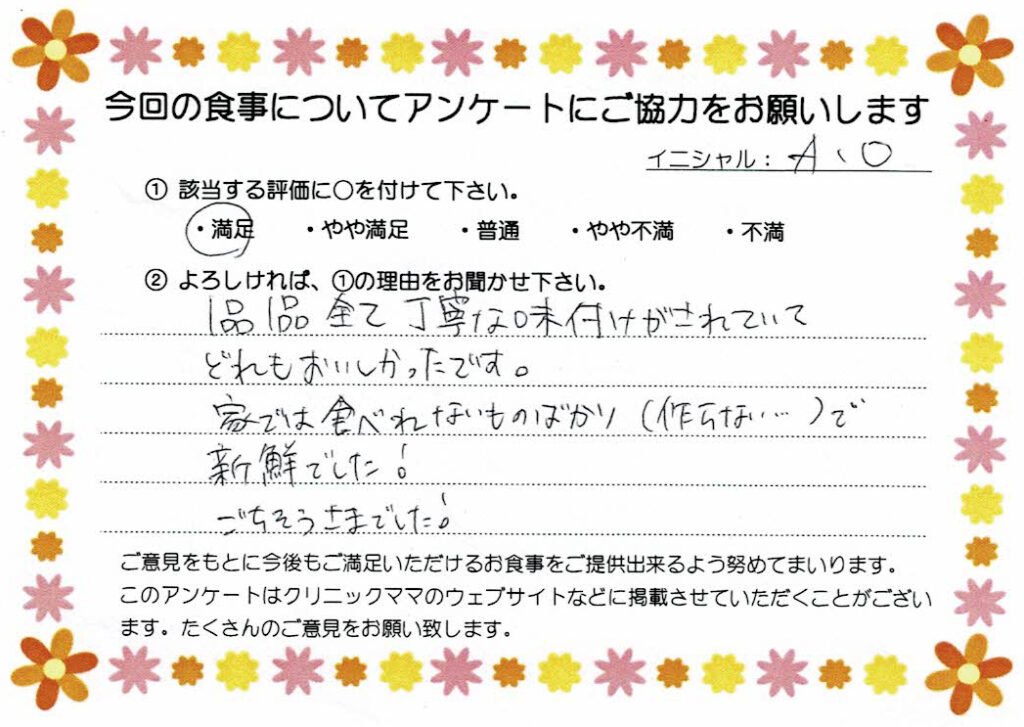 今回の食事についてアンケートにご協力をお願いします
イニシャル： A、O
① 該当する評価に○を付けて下さい。
・満足　・やや満足　・普通　・やや不満　・不満
② よろしければ、①の理由をお聞かせ下さい。
1品1品全て丁寧な味付けがされていて
どれもおいしかったです。
家では食べれないものばかり（作らない…）で
新鮮でした！
ごちそうさまでした！
ご意見をもとに今後もご満足いただけるお食事をご提供出来るよう努めてまいります。
このアンケートはクリニックママのウェブサイトなどに掲載させていただくことがござい
ます。たくさんのご意見をお願い致します。